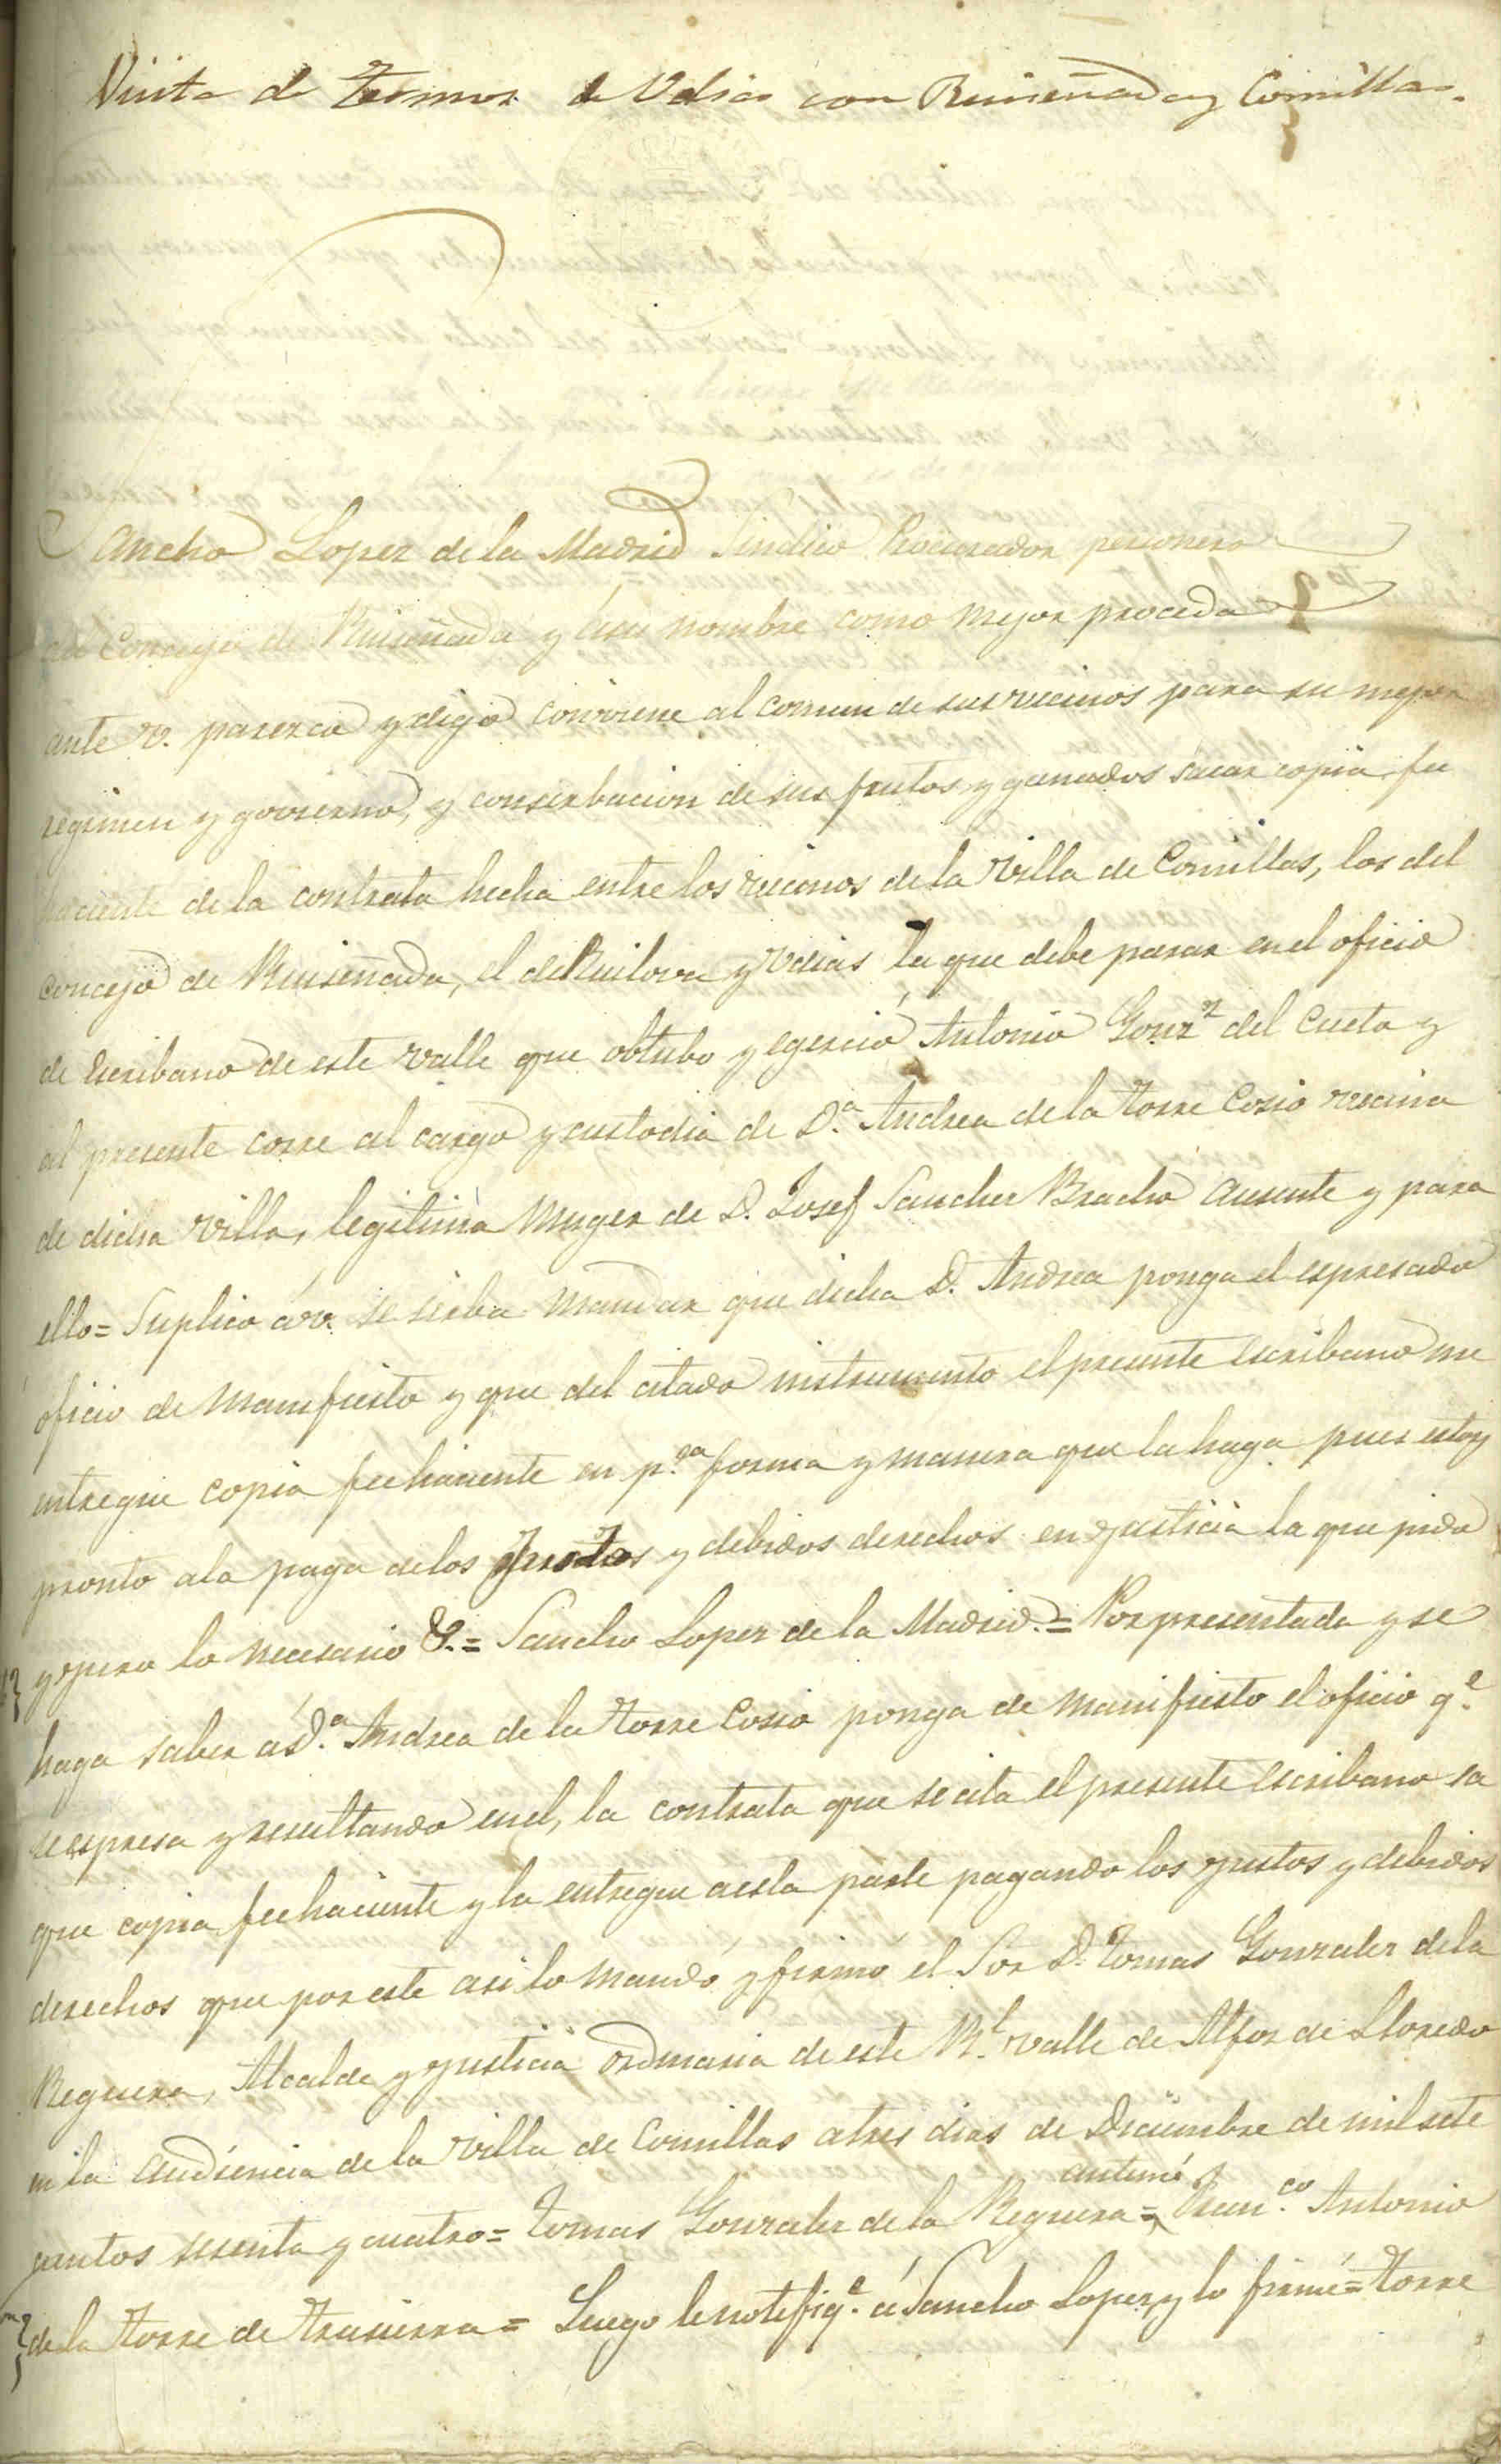 Visita de Terminos de Udias con Ruiseñada y Comillas.
Sancho Lopez de la Madrid Sindico Procurador personero
del Concejo de Ruiseñada y ásu nombre como mejor proceda
ante v. parezca y digo conviene al comun de sus vecinos para su mejor
regimen y govierno, y conserbacion de sus frutos y ganados sacar copia fee
haciente de la contrata hecha entre los vecinos de la Villa de Comillas, los del
concejo de Ruiseñada, el de Ruilova y Udias la que debe parar en el oficio
de Escribano de este valle que obtubo y egerció Antonio Gonz.z del Cueto y
al presente corre al cargo y custodia de D.a Andrea de la Torre Cosio vecina
de dicha villa, legitima Muger de D. Josef Sanchez Bracho ausente y para
ello= Suplico áv. se sirba mandar que dicha D. Andrea ponga el espresado
oficio de manifiesto y que del citado instrumento el presente escribano me
entregue copia feehaciente en p.ca forma y manera que la haga pues estoy
pronto ala paga delos Justos y debidos derechos en justicia la que pido
y para lo necesario &.= Sancho Lopez de la Madrid.= Por presentada y se
haga saber áD.a Andrea de la Torre Cosio ponga de manifiesto el oficio q.e
se espresa y resultando enel, la contrata que se cita el presente escribano sa
que copia feehaciente y la entregue aesta parte pagando los justos y debidos
derechos que por este asi lo mandó y firmó el Sor D. Tomas Gonzalez dela
Reguera, Alcalde y justicia ordinaria de este R.l valle de Alfoz de Lloredo
en la audiencia de la villa de Comillas atres dias de Diciembre de mil sete
cientos sesenta y cuatro= Tomas Gonzalez de la Reguera= antemi Fran.co Antonio
de la Torre de Trasierra= Luego lenotifiq.e á Sancho Lopez y lo firmé= Torre